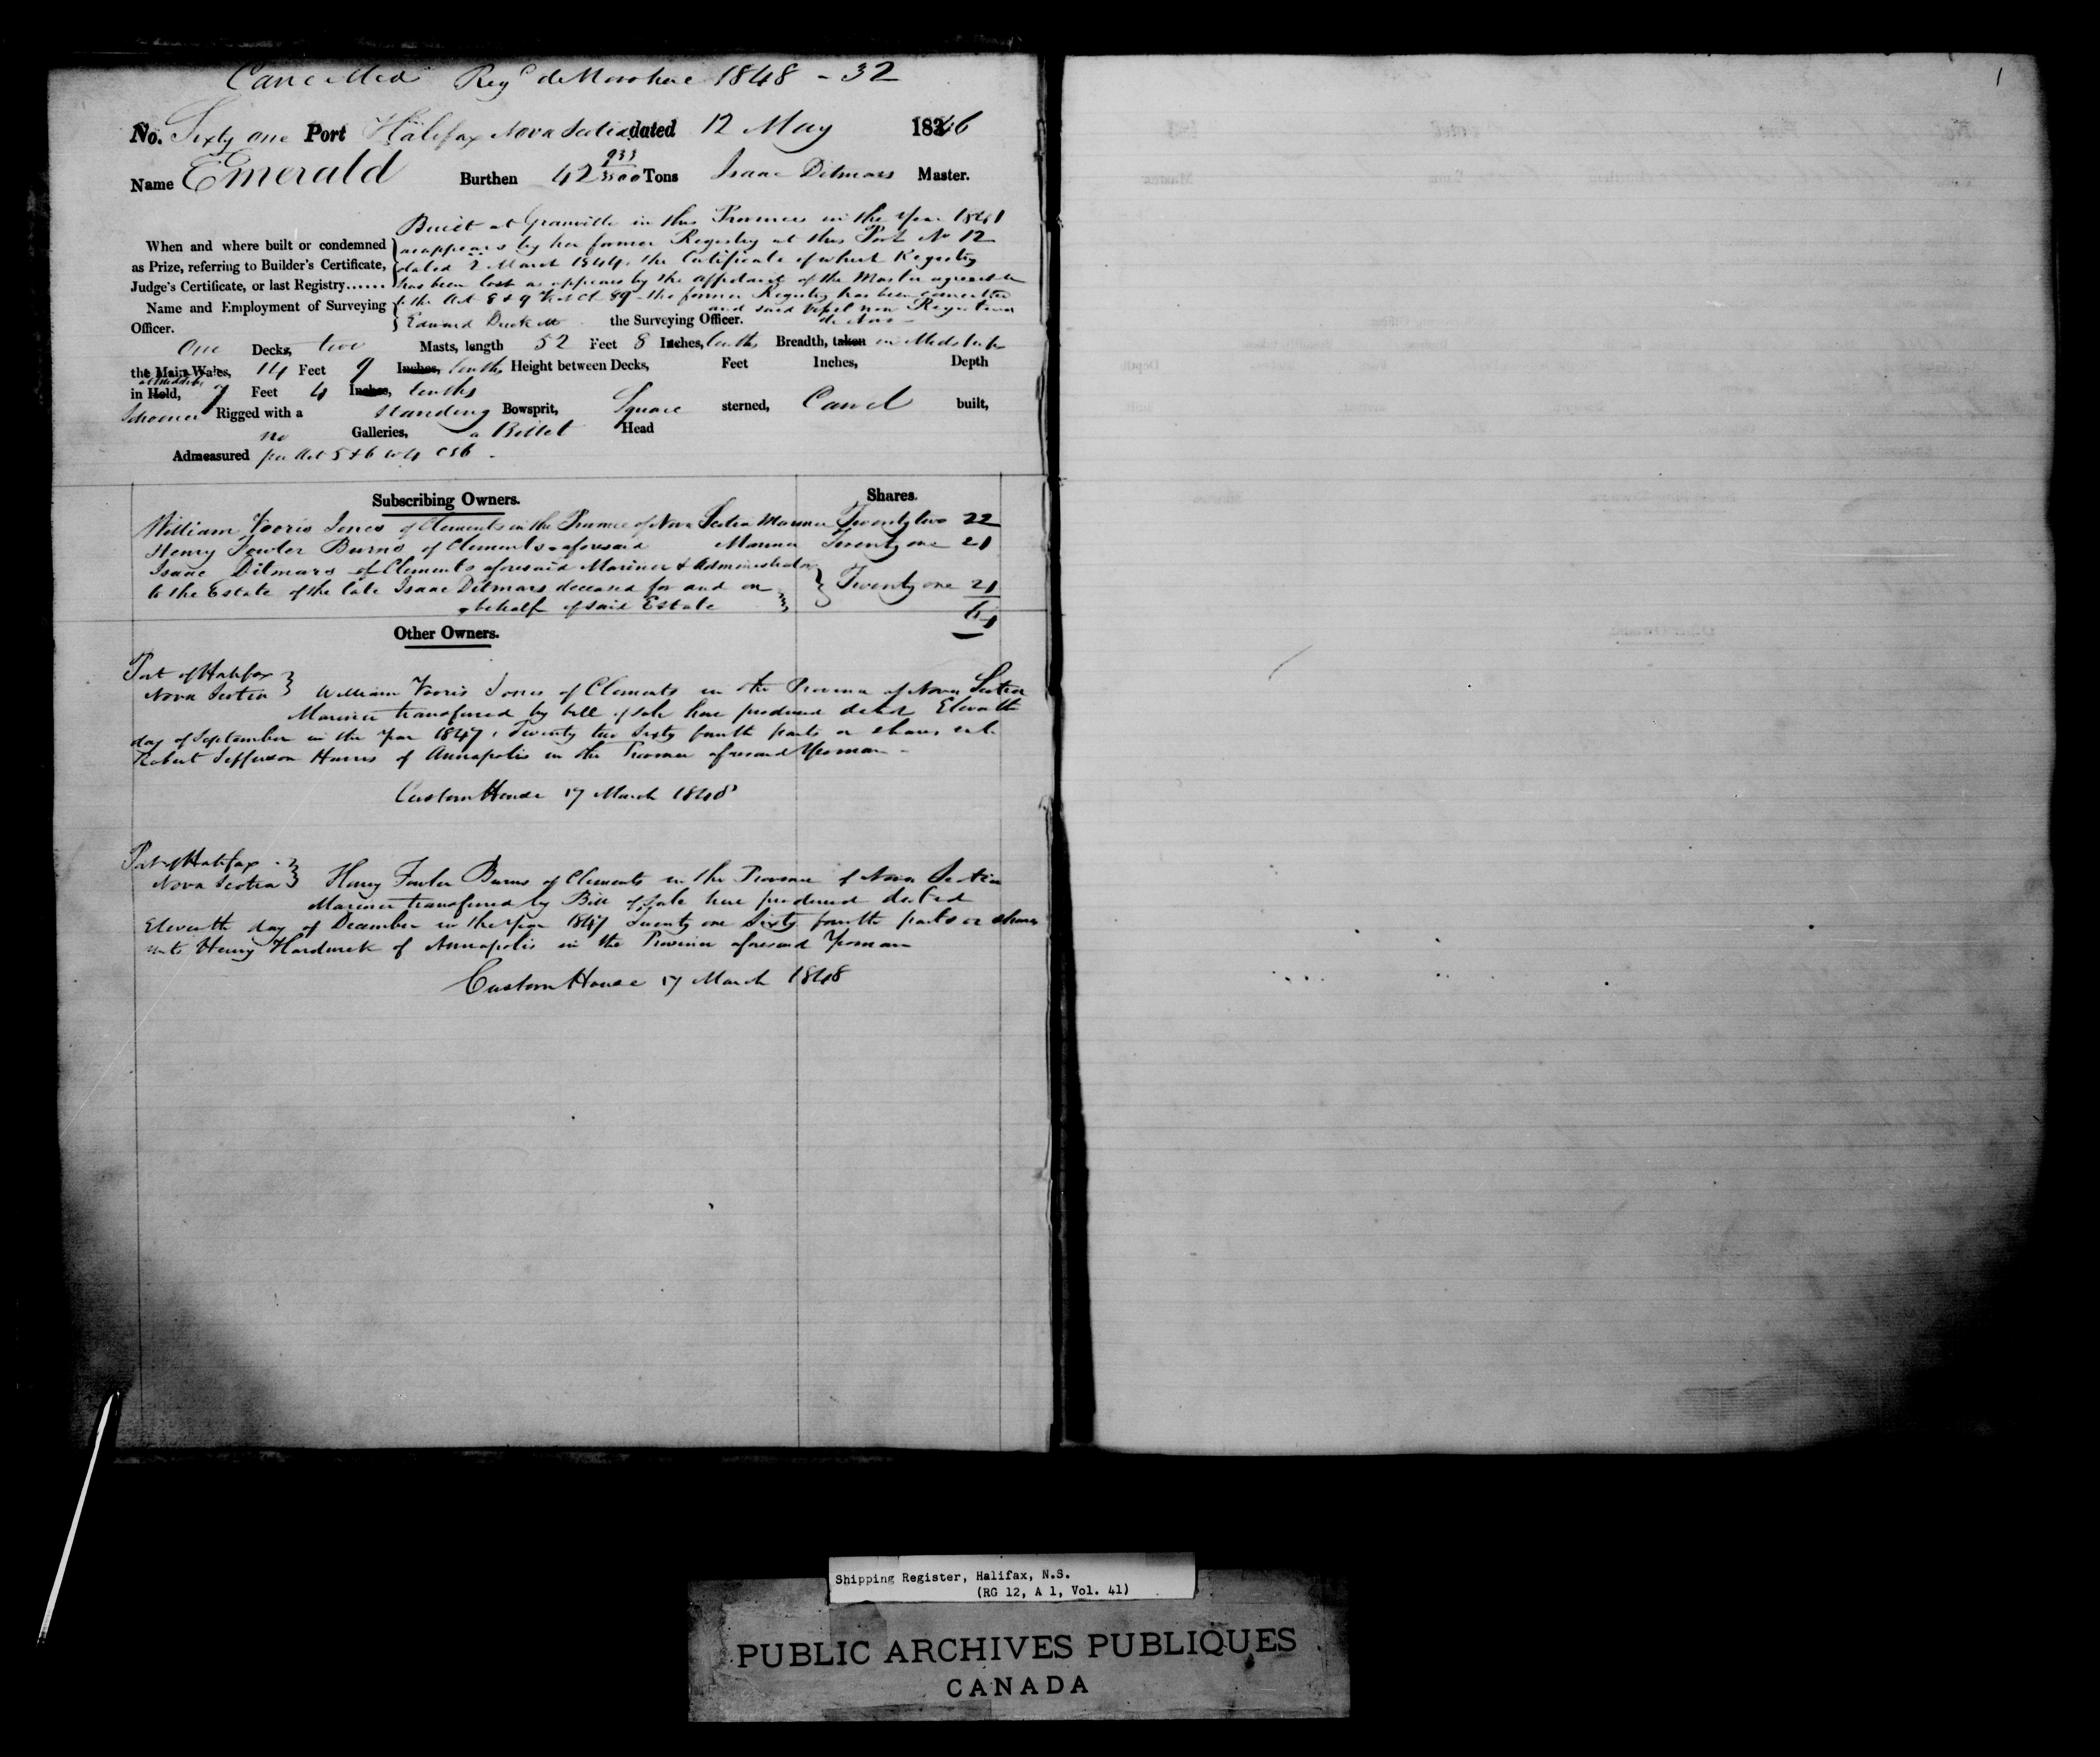 Cancelled Regd de Novo here 1848 - 32
1
No. Sixty one Port Halifax Nova Scotia dated 12 May 1846
Name Emerald Burthen 42 933/3500 Tons Isaac Ditmars Master.
Built at Granville in this Province in the Year 1841
When and where built or condemned as appears by her former Registry at this Port No 12
as Prize, referring to Builder's Certificate, dated 2 March 1844, the Certificate of which Registry
Judge's Certificate, or last Registry...... has been lost as appears by the affidavit of the Master agreeable
Name and Employment of Surveying to the Act 8 & 9 Vict Ch 89 - the former Registry has been cancelled
and said Vessel now Registered
Officer. Edward Duckett the Surveying Officer. de Novo -
One Decks, two Masts, length 52 Feet 8 Inches, tenths Breadth, taken in Midships
the Main Wales, 14 Feet 9 Inches, tenths Height between Decks, Feet Inches, Depth
at Midships
in Hold, 7 Feet 4 Inches, tenths
Schooner Rigged with a standing Bowsprit, Square sterned, Carvel built,
no Galleries, a Billet Head
Admeasured per Act 5 & 6 W 4 C 56 -
Subscribing Owners. Shares.
William Vooris Jones of Clements in the Province of Nova Scotia Mariner Twenty two 22
Henry Fowler Burns of Clements aforesaid Mariner Twenty one 21
Isaac Ditmars of Clements aforesaid Mariner & Administrator
to the Estate of the late Isaac Ditmars deceased for and on Twenty one 21
behalf of said Estate 64
Other Owners.
Port of Halifax
Nova Scotia William Vooris Jones of Clements in the Province of Nova Scotia
Mariner transferred by bill of sale here produced dated Eleventh
day of September in the Year 1847, Twenty two Sixty fourth parts or shares unto
Robert Jefferson Harris of Annapolis in the Province aforesaid Yeoman -
Custom House 17 March 1848
Port of Halifax
Nova Scotia Henry Fowler Burns of Clements in the Province of Nova Scotia
Mariner transferred by Bill of Sale here produced dated
Eleventh day of December in the Year 1847 Twenty one Sixty fourth parts or shares
unto Henry Hardwick of Annapolis in the Province aforesaid Yeoman
Custom House 17 March 1848
Shipping Register, Halifax, N.S.
(RG 12, A 1, Vol. 41)
PUBLIC ARCHIVES PUBLIQUES
CANADA